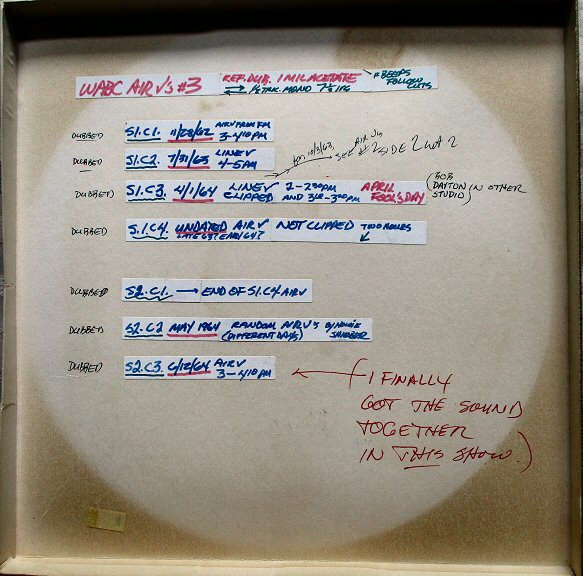 WABC AIR √'s #3 REF. DUB. 1 MIL ACETATE # BEEPS
1/2 TRK. MONO 7 1/2 IPS FOLLOW
CUTS
DUBBED S1.C1. 11/28/62 AIR√ FROM FM
3-4/10 PM
DUBBED S1.C2. 7/31/63 LINE √
4-5 PM
SEE AIR √'s #2 SIDE 2 CUT 2
DUBBED S1.C3. 4/1/64 LINE √ 2-230PM APRIL (BOB
CLIPPED AND FOOL'S DAY DAYTON IN OTHER
STUDIO)
DUBBED S.1C4. UNDATED AIR √ NOT CLIPPED TWO HOURS
LATE 63? EARLY 64?
DUBBED S2.C1. → END OF S1.C4 AIR √
DUBBED S2.C2 MAY 1964 RANDOM AIR √'s BY HOWIE
(DIFFERENT DAYS)
DUBBED S2.C3. 6/12/64 AIR √
3-4/10 PM
(I FINALLY
GOT THE SOUND
TOGETHER
IN THIS SHOW.)